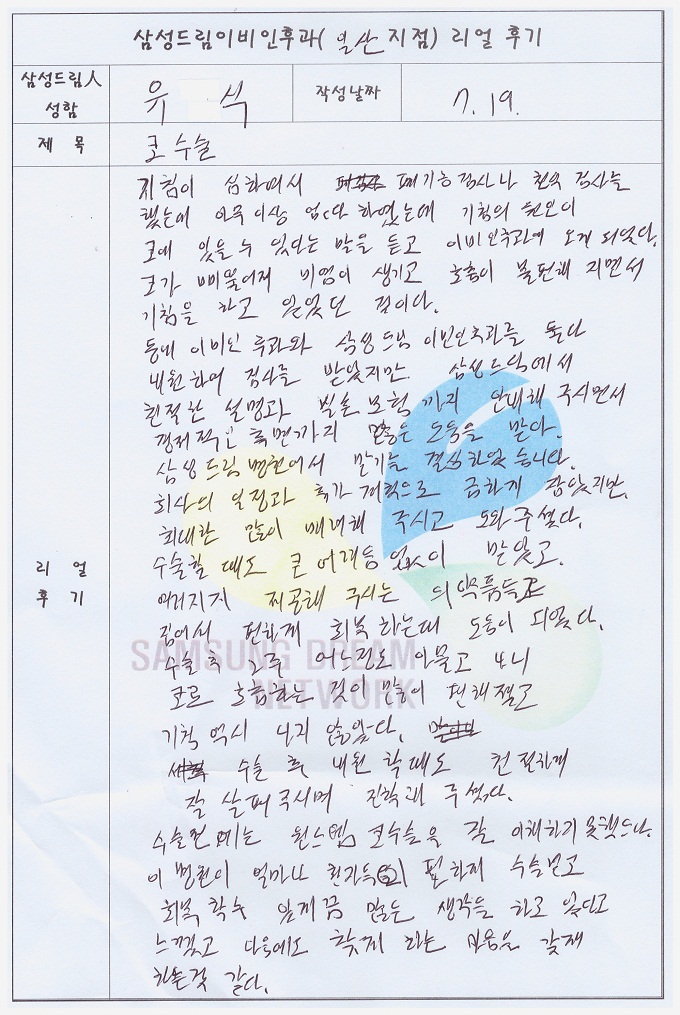 삼성드림이비인후과(일산지점) 리얼 후기
삼성드림人 성함 유 식 작성날짜 7. 19.
제 목 코 수술
기침이 심하여서 폐기능검사나 천식 검사를
했는데 아무 이상 없다 하였는데 기침의 원인이
코에 있을 수 있다는 말을 듣고 이비인후과에 오게 되었다.
코가 삐뚤어져 비염이 생기고 호흡이 불편해 지면서
기침을 하고 있었던 것이다.
동네 이비인후과와 삼성드림 이빈인후과를 둘다
내원하여 검사를 받았지만 삼성드림에서
친절한 설명과 보험까지 안내해 주시면서
경제적인 측면까지 많은 도움을 받다.
삼성드림병원에서 맡기를 결심하였습니다.
회사의 일정과 휴가 계획으로 급하게 잡았지만,
최대한 많이 배려해 주시고 도와주셨다.
수술할 때도 큰 어려움없이 받았고.
여러가지 제공해 주시는 의약품들로
집에서 편하게 회복하는데 도움이 되었다.
수술 후 2주 어느정도 아물고 나니
코로 호흡하는 것이 많이 편해졌고
기침 역시 나지 않았다.
수술 후, 내원 할때도 친절하게
잘 살펴주시며 진찰해 주셨다.
수술전에는 원스텝 코수술을 잘 이해하기 못했으나.
이 병원이 얼마나 환자들이 편하게 수술받고
회복 할수 있게끔 많은 생각을 하고 있다고
느꼈고 다음에도 찾게 되는 마음을 갖게
하는것 같다.
리 얼
후 기
SAMSUNG DREAM
NETWORK